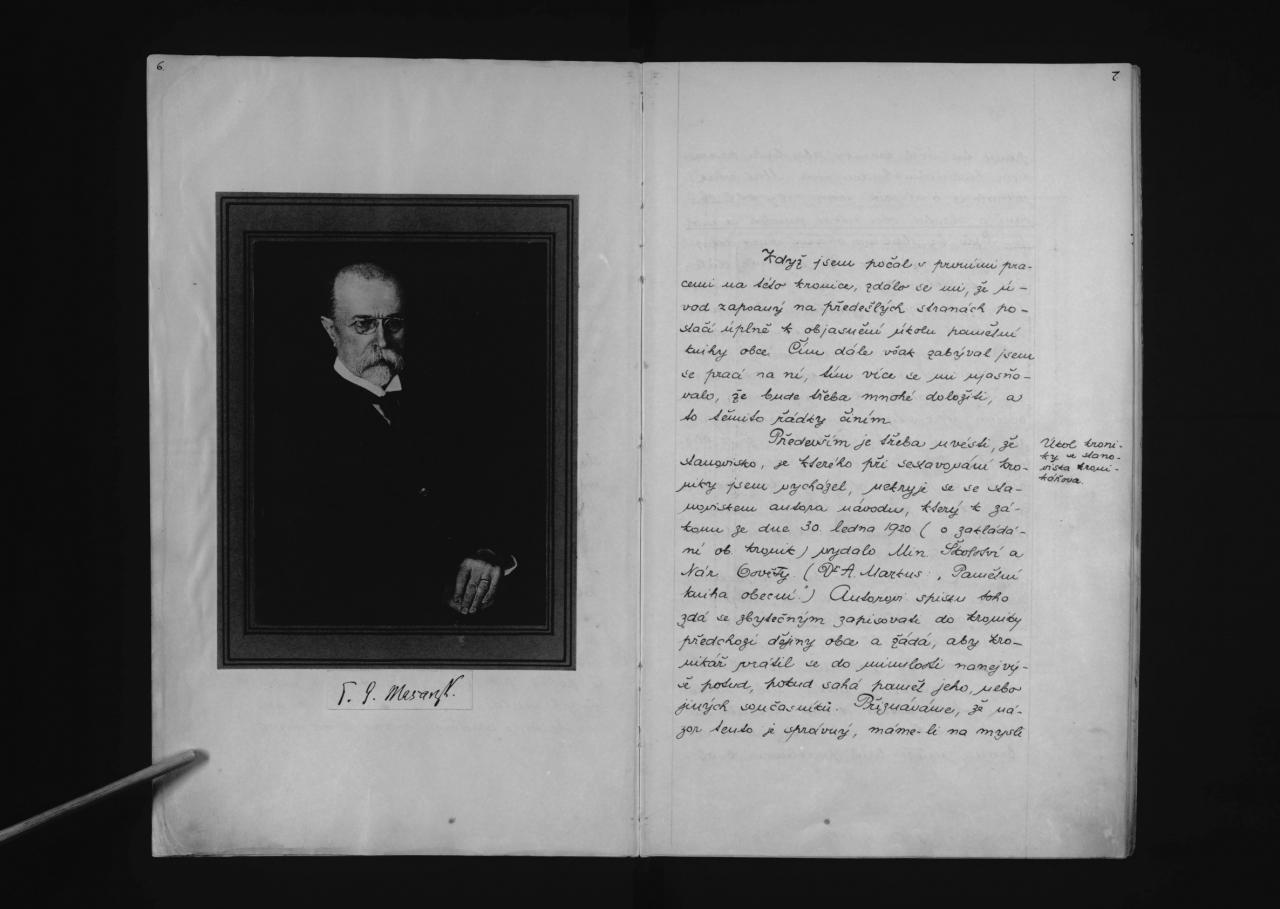 6
T. G. Masaryk.
7
Když jsem počal s prvními pra-
cemi na této kronice, zdálo se mi, že ú-
vod zapsaný na předešlých stranách po-
stačí úplně k objasnění úkolu pamětní
knihy obce. Čím dále však zabýval jsem
se prací na ní, tím více se mi ujasňo-
valo, že bude třeba mnohé doložiti, a
to těmito řádky činím.
Především je třeba uvésti, že
stanovisko, ze kterého při sestavování kro-
niky jsem vycházel, nekryje se se sta-
noviskem autora návodu, který k zá-
konu ze dne 30. ledna 1920 ( o zakládá-
ní ob. kronik ) vydalo Min. Školství a
Nár. Osvěty. ( Dr A. Markus: „Pamětní
kniha obecní.") Autorovi spisu toho
zdá se zbytečným zapisovati do kroniky
předchozí dějiny obce a žádá, aby kro-
nikář vrátil se do minulosti nanejvý-
š potud, pokud sahá paměť jeho, nebo
jiných současníků. Přiznáváme, že ná-
zor tento je správný, máme-li na mysli
Úkol kroni-
ky a stano-
viska kroni-
kářova.